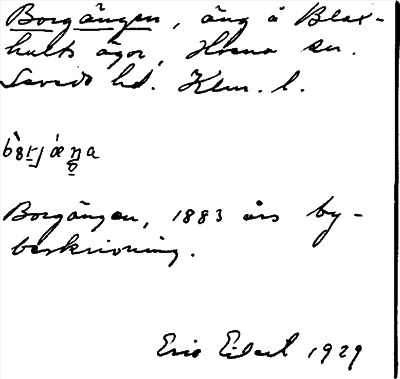 Borgängen, äng å Blax-
hults ägor, Horns sn.
Sevede hd. Klm. l.
Borgängen, 1883 års by-
beskrivning.
Eric Eilert 1929